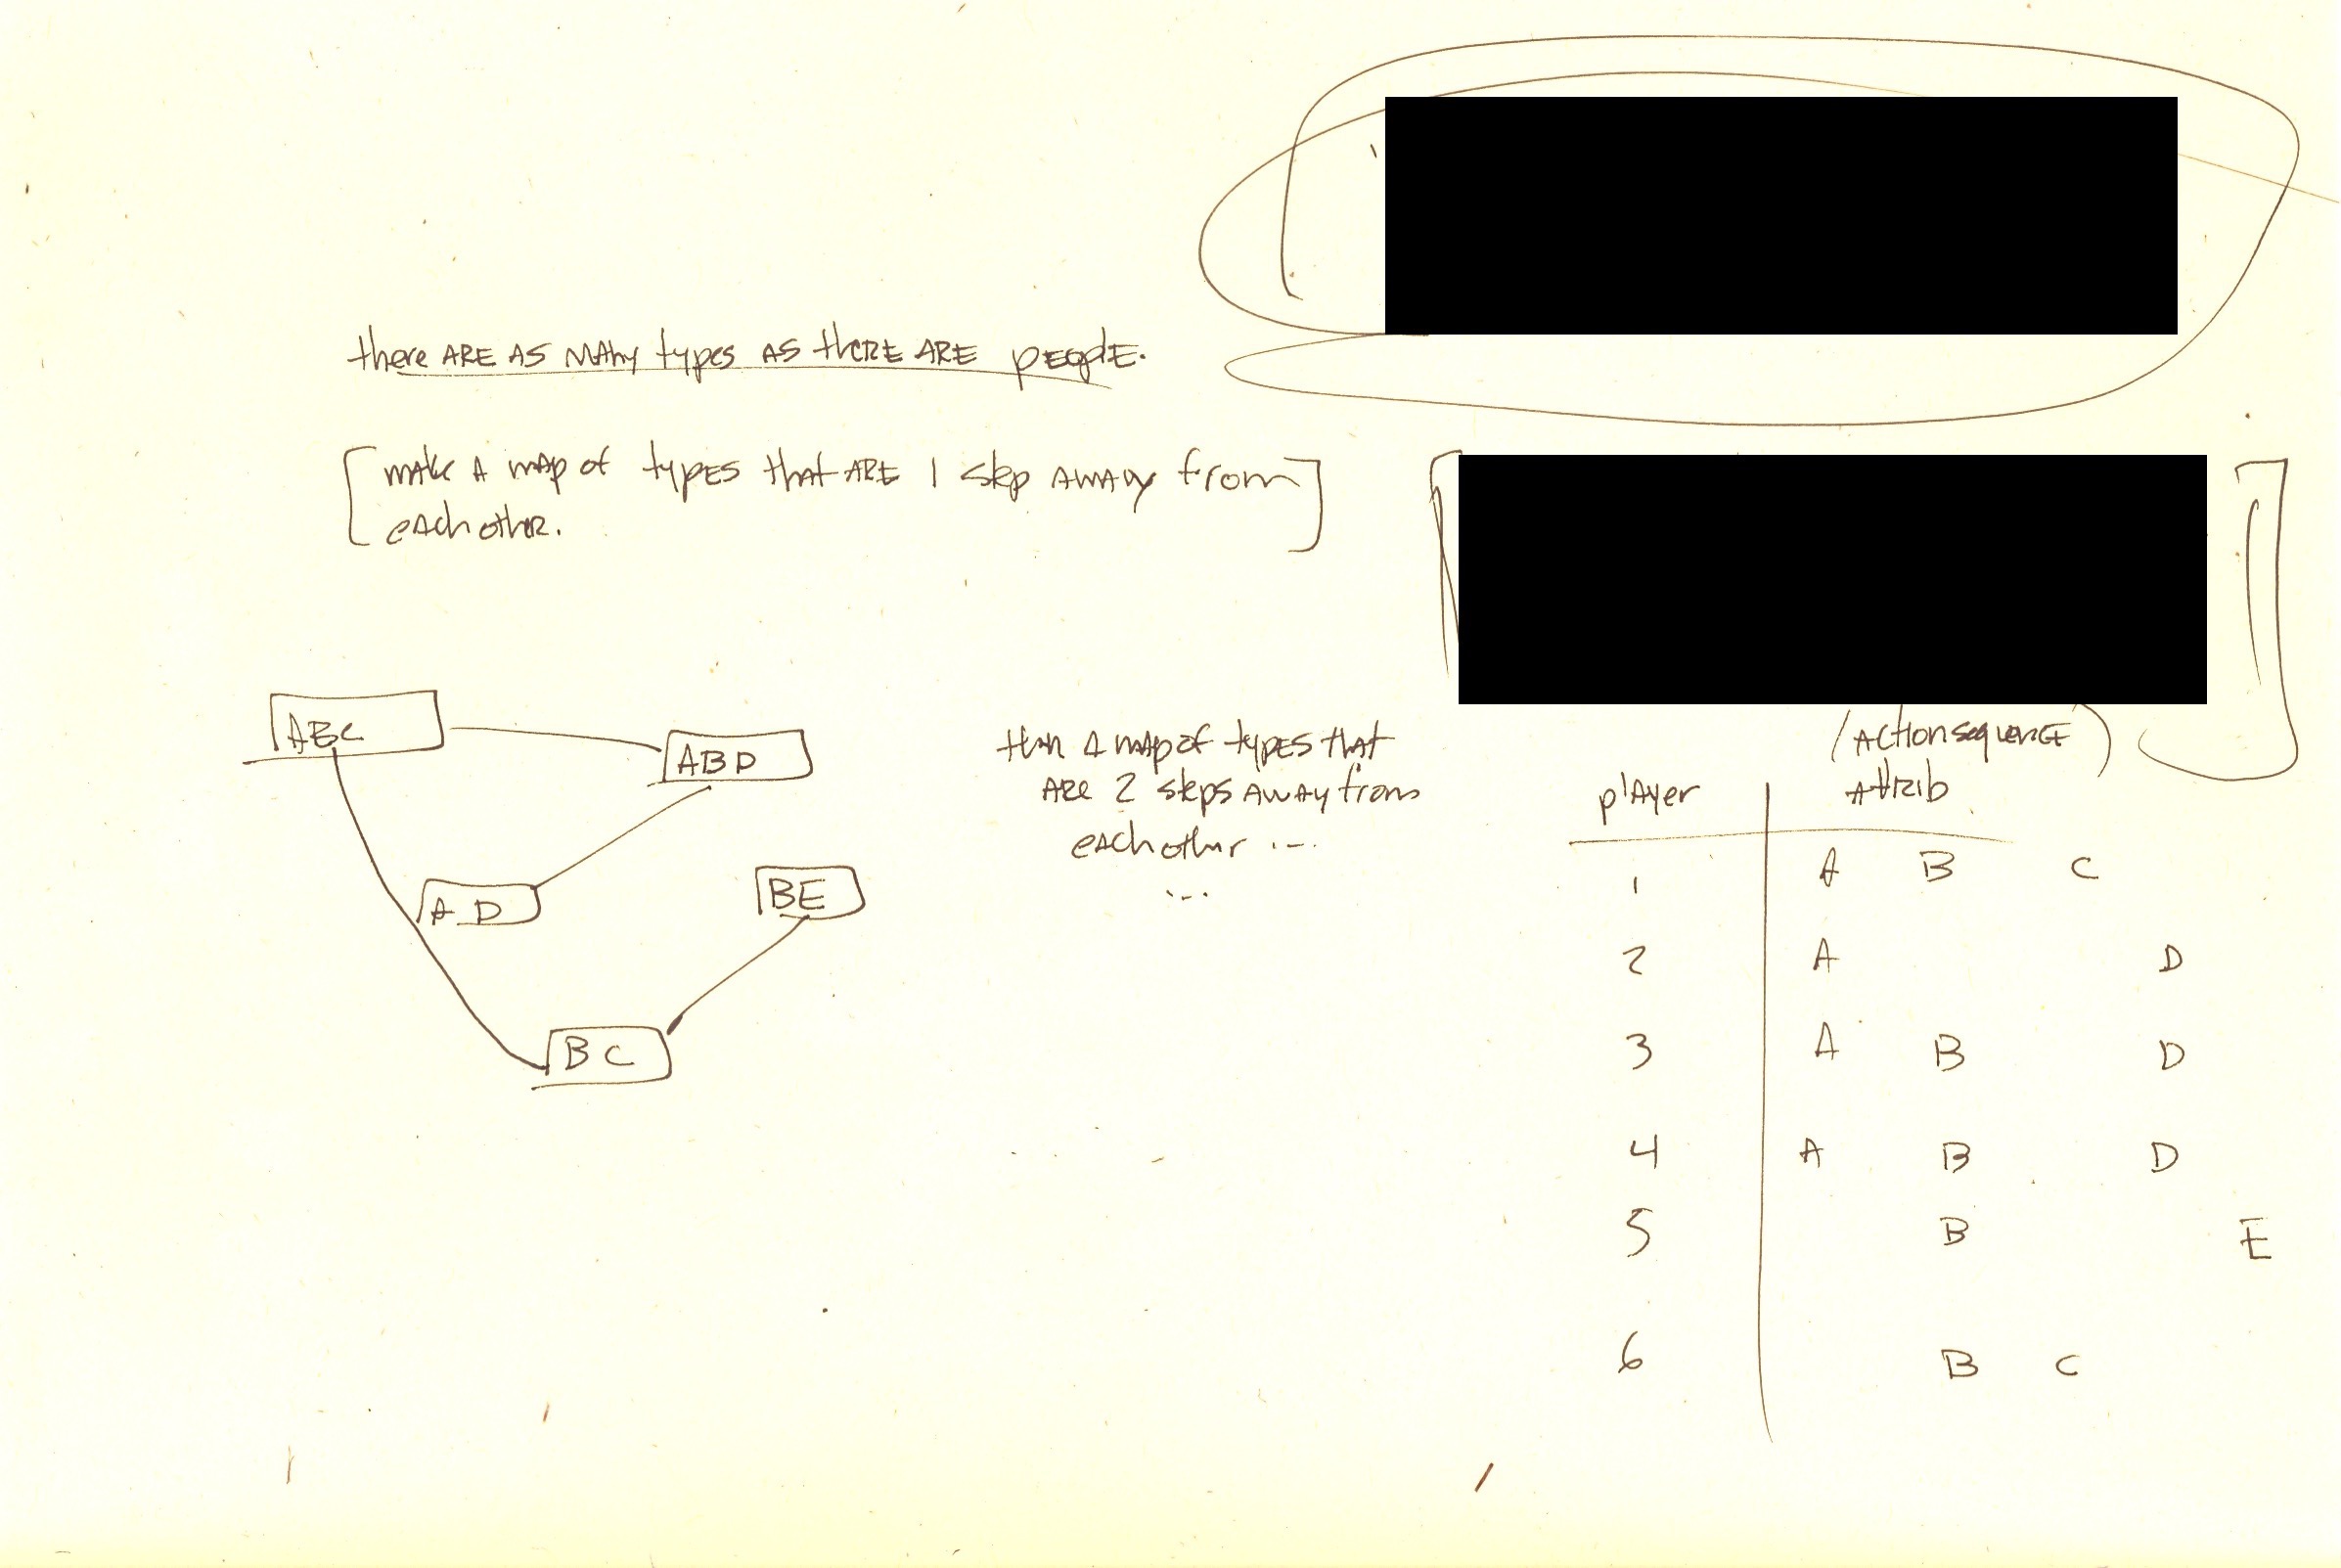 there ARE AS MANY types AS thERE ARE pEoplE.
make A map of types that ARE 1 step AWAy from
each other.
ABC
ABD
A D
BE
B C
then A map of types that
ARE 2 steps AWAY from
each other ...
...
(Action sequence)
plAyer attrib
1 A B C
2 A D
3 A B D
4 A B D
5 B E
6 B C